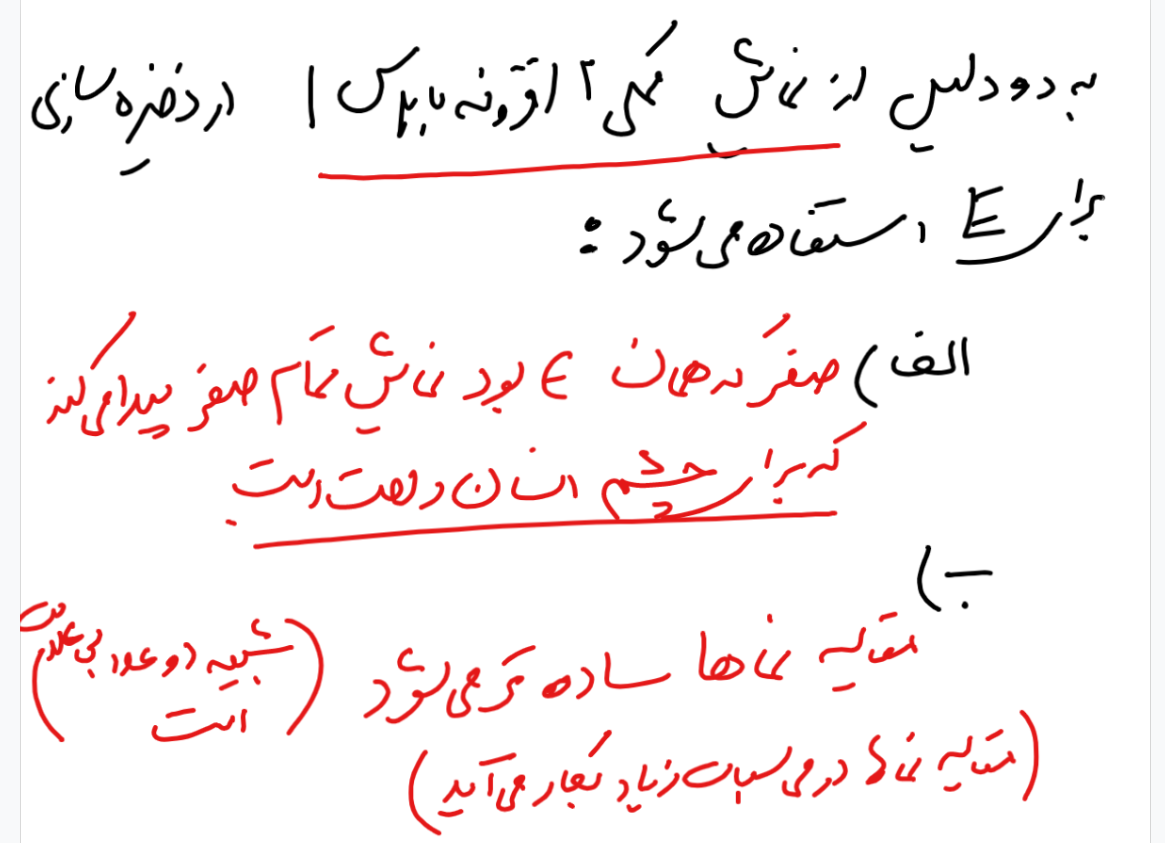 به دو دلیل از نمایش مکمل ۲ افزونه با بایاس ا در ذخیره سازی
برای E استفاده می شود :
الف) صفر که همان ∈ بود نمایش تمام صفر پیدا می کند
که برای چشم انسان راحت است
ب)
مقایسه نماها ساده تر می شود (شبیه دو عدد بی علامت است)
(مقایسه نماها در محاسبات زیاد بکار می آید)